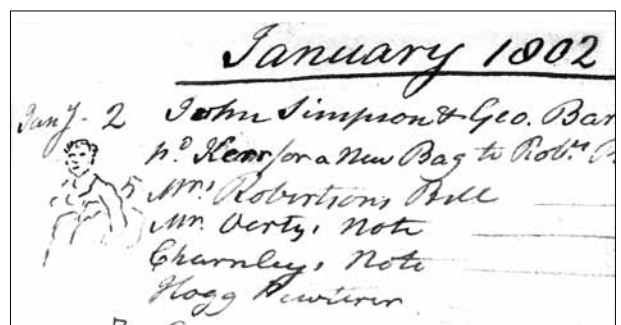 January 1802
Jany. 2 John Simpson & Geo. Bar
pd. Kerr for a New Bag to Robt.
5 Mrs Robertsons Bill
Mr. Vertys Note
Charnleys Note
Hogg Pewterer